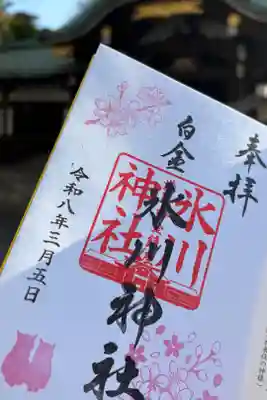 奉拝
白金
氷川神社
氷川
神社
令和八年三月五日